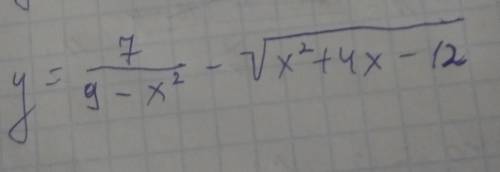 y = 7 / (9 - x²) - √(x² + 4x - 12)